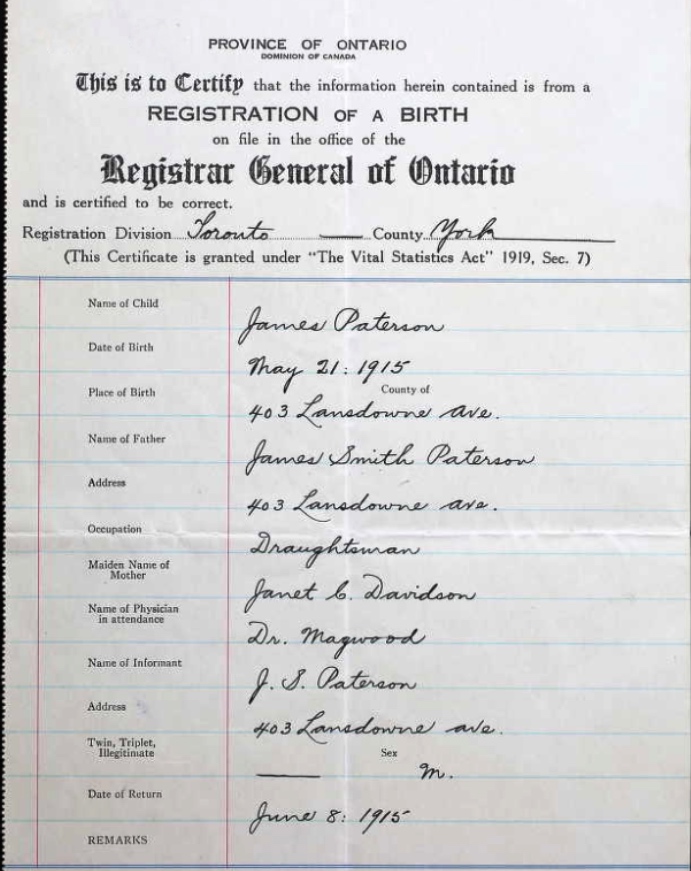 PROVINCE OF ONTARIO
DOMINION OF CANADA
This is to Certify that the information herein contained is from a
REGISTRATION OF A BIRTH
on file in the office of the
Registrar General of Ontario
and is certified to be correct.
Registration Division Toronto County York
(This Certificate is granted under "The Vital Statistics Act" 1919, Sec. 7)
Name of Child
James Paterson
Date of Birth
May 21: 1915
Place of Birth County of
403 Lansdowne Ave.
Name of Father
James Smith Paterson
Address
403 Lansdowne ave.
Occupation
Draughtsman
Maiden Name of
Mother
Janet C. Davidson
Name of Physician
in attendance
Dr. Magwood
Name of Informant
J. S. Paterson
Address
403 Lansdowne ave.
Twin, Triplet,
Illegitimate
Sex
M.
Date of Return
June 8: 1915
REMARKS